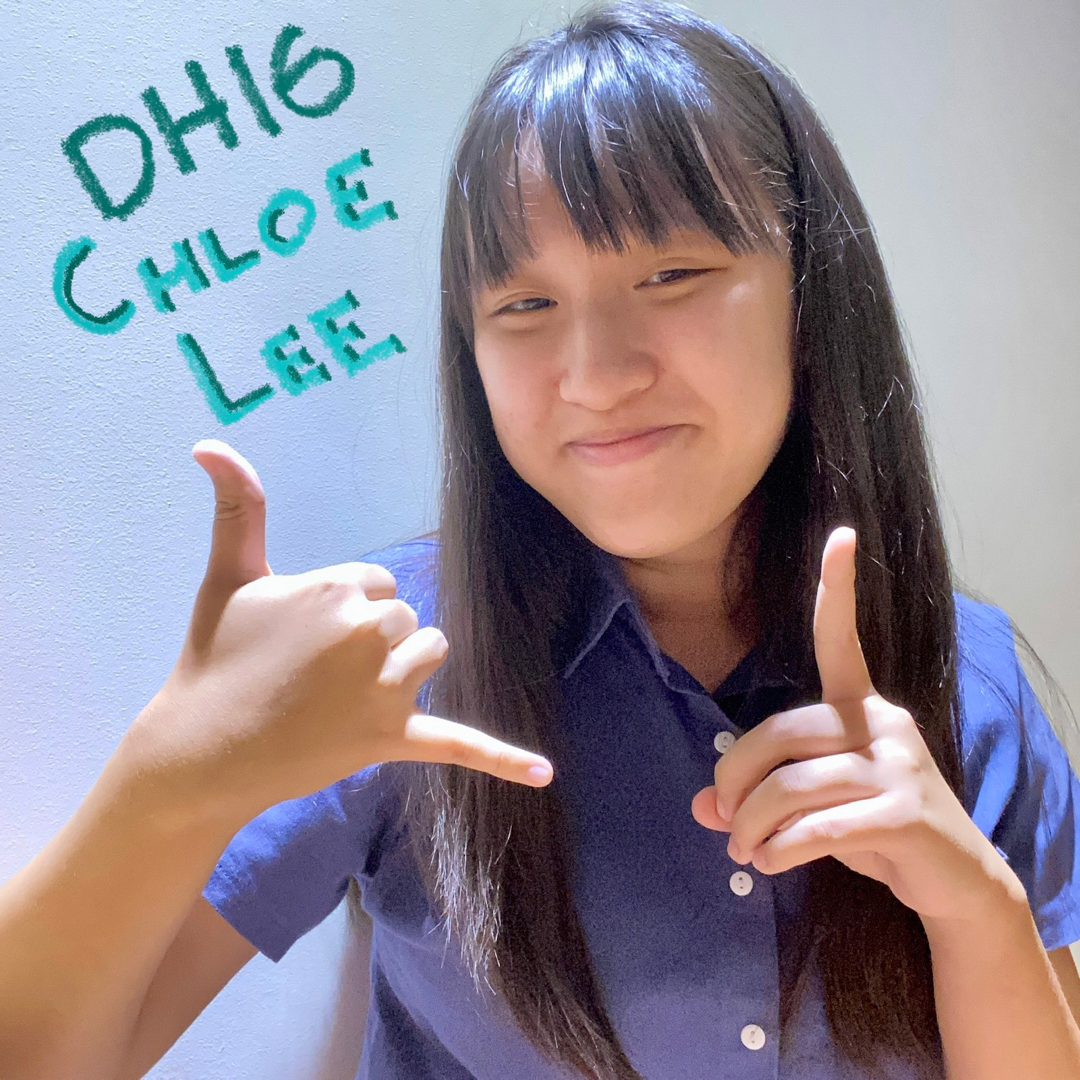 DH16
CHLOE
LEE